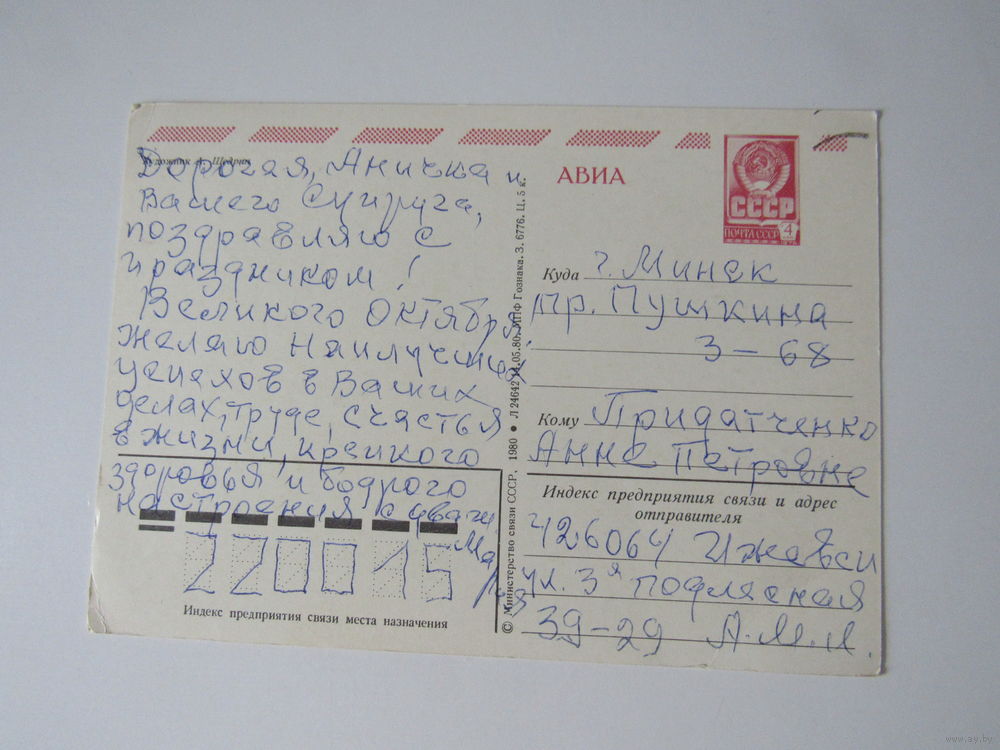 Художник А. Щедрин
Дорогая, Аничка и
Вашего Супруга,
поздравляю с
праздником!
Великого Октября
желаю наилучших
успехов в Ваших
делах, труде, счастья
в жизни, крепкого
здоровья и бодрого
настроения с ув
Мария
220015
Индекс предприятия связи места назначения
© Министерство связи СССР. 1980 • Л 24642 14.05.80. МПФ Гознака. З. 6776. Ц. 5 к.
АВИА
СССР
ПОЧТА СССР 4
Куда г. Минск
пр. Пушкина
3-68
Кому Придатченко
Анне Петровне
Индекс предприятия связи и адрес
отправителя
426064 Ижевск
ул. 3я подлесная
39-29 А.М.И.
www.ay.by